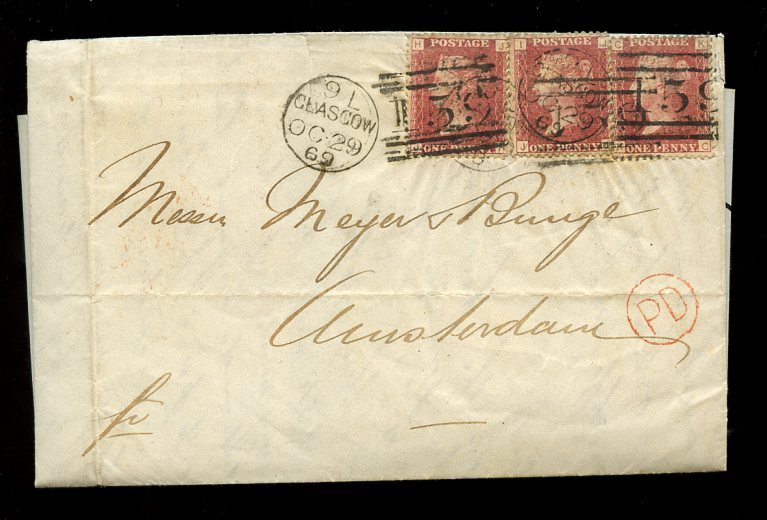 H POSTAGE J
I POSTAGE J
C POSTAGE K
ONE PENNY
J ONE PENNY I
ONE PENNY C
159
9 L
GLASGOW
OC 29
69
Messrs Meyer & Bunge
Amsterdam
PD